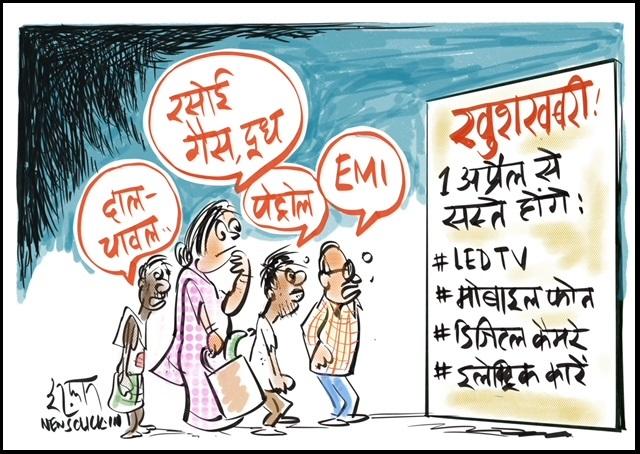 रसोई
गैस, दूध
EMI
पेट्रोल
दाल-
चावल..
खुशखबरी!
1 अप्रैल से
सस्ते होंगे:
#LED TV
#मोबाइल फोन
#डिजिटल कैमरे
#इलेक्ट्रिक कारें
इरफान
NEWSCLICK.IN